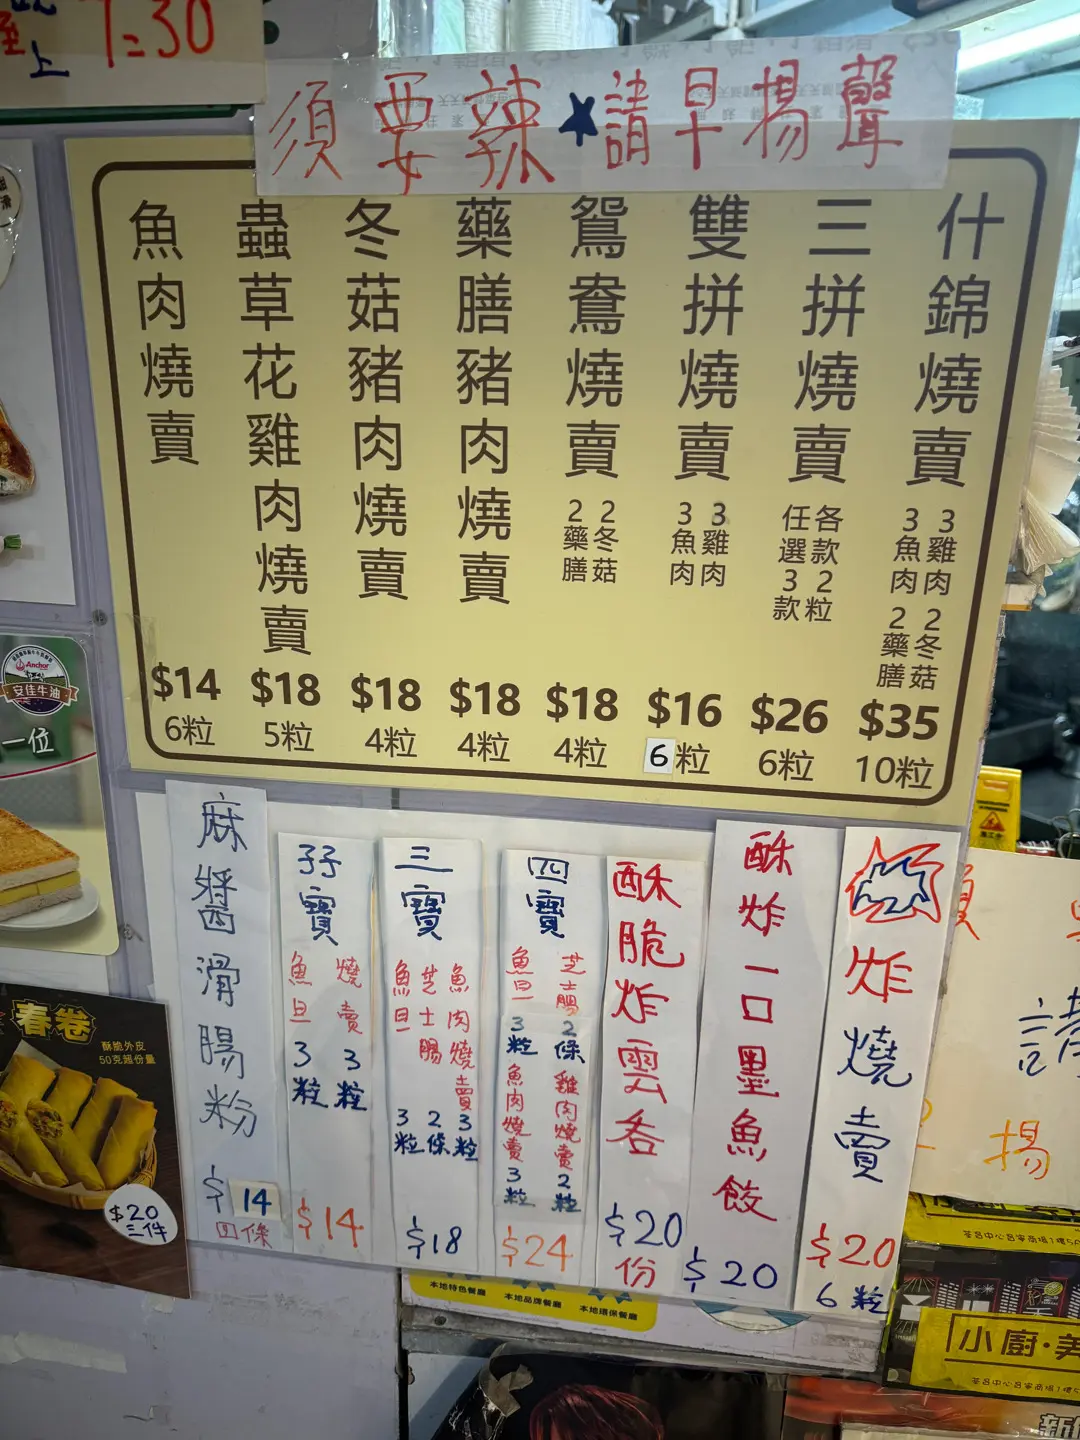 7:30
上
須要辣★請早揚聲
魚肉燒賣
$14
6粒
蟲草花雞肉燒賣
$18
5粒
冬菇豬肉燒賣
$18
4粒
藥膳豬肉燒賣
$18
4粒
鴛鴦燒賣
2冬菇
2藥膳
$18
4粒
雙拼燒賣
3雞肉
3魚肉
$16
6粒
三拼燒賣
各款2粒
任選3款
$26
6粒
什錦燒賣
3雞肉
3魚肉
2冬菇
2藥膳
$35
10粒
麻醬滑腸粉
$14
四條
孖寶
魚旦3粒
燒賣3粒
$14
三寶
魚旦3粒
芝士腸2條
魚肉燒賣3粒
$18
四寶
魚旦3粒
芝士腸2條
魚肉燒賣3粒
雞肉燒賣2粒
$24
酥脆炸雲吞
$20
份
酥炸一口墨魚餃
$20
炸燒賣
$20
6粒
Anchor
安佳牛油
一位
春卷
酥脆外皮
50克超份量
$20
三件
本地特色餐廳
本地品牌餐廳
本地環保餐廳
請
揚
小廚·美